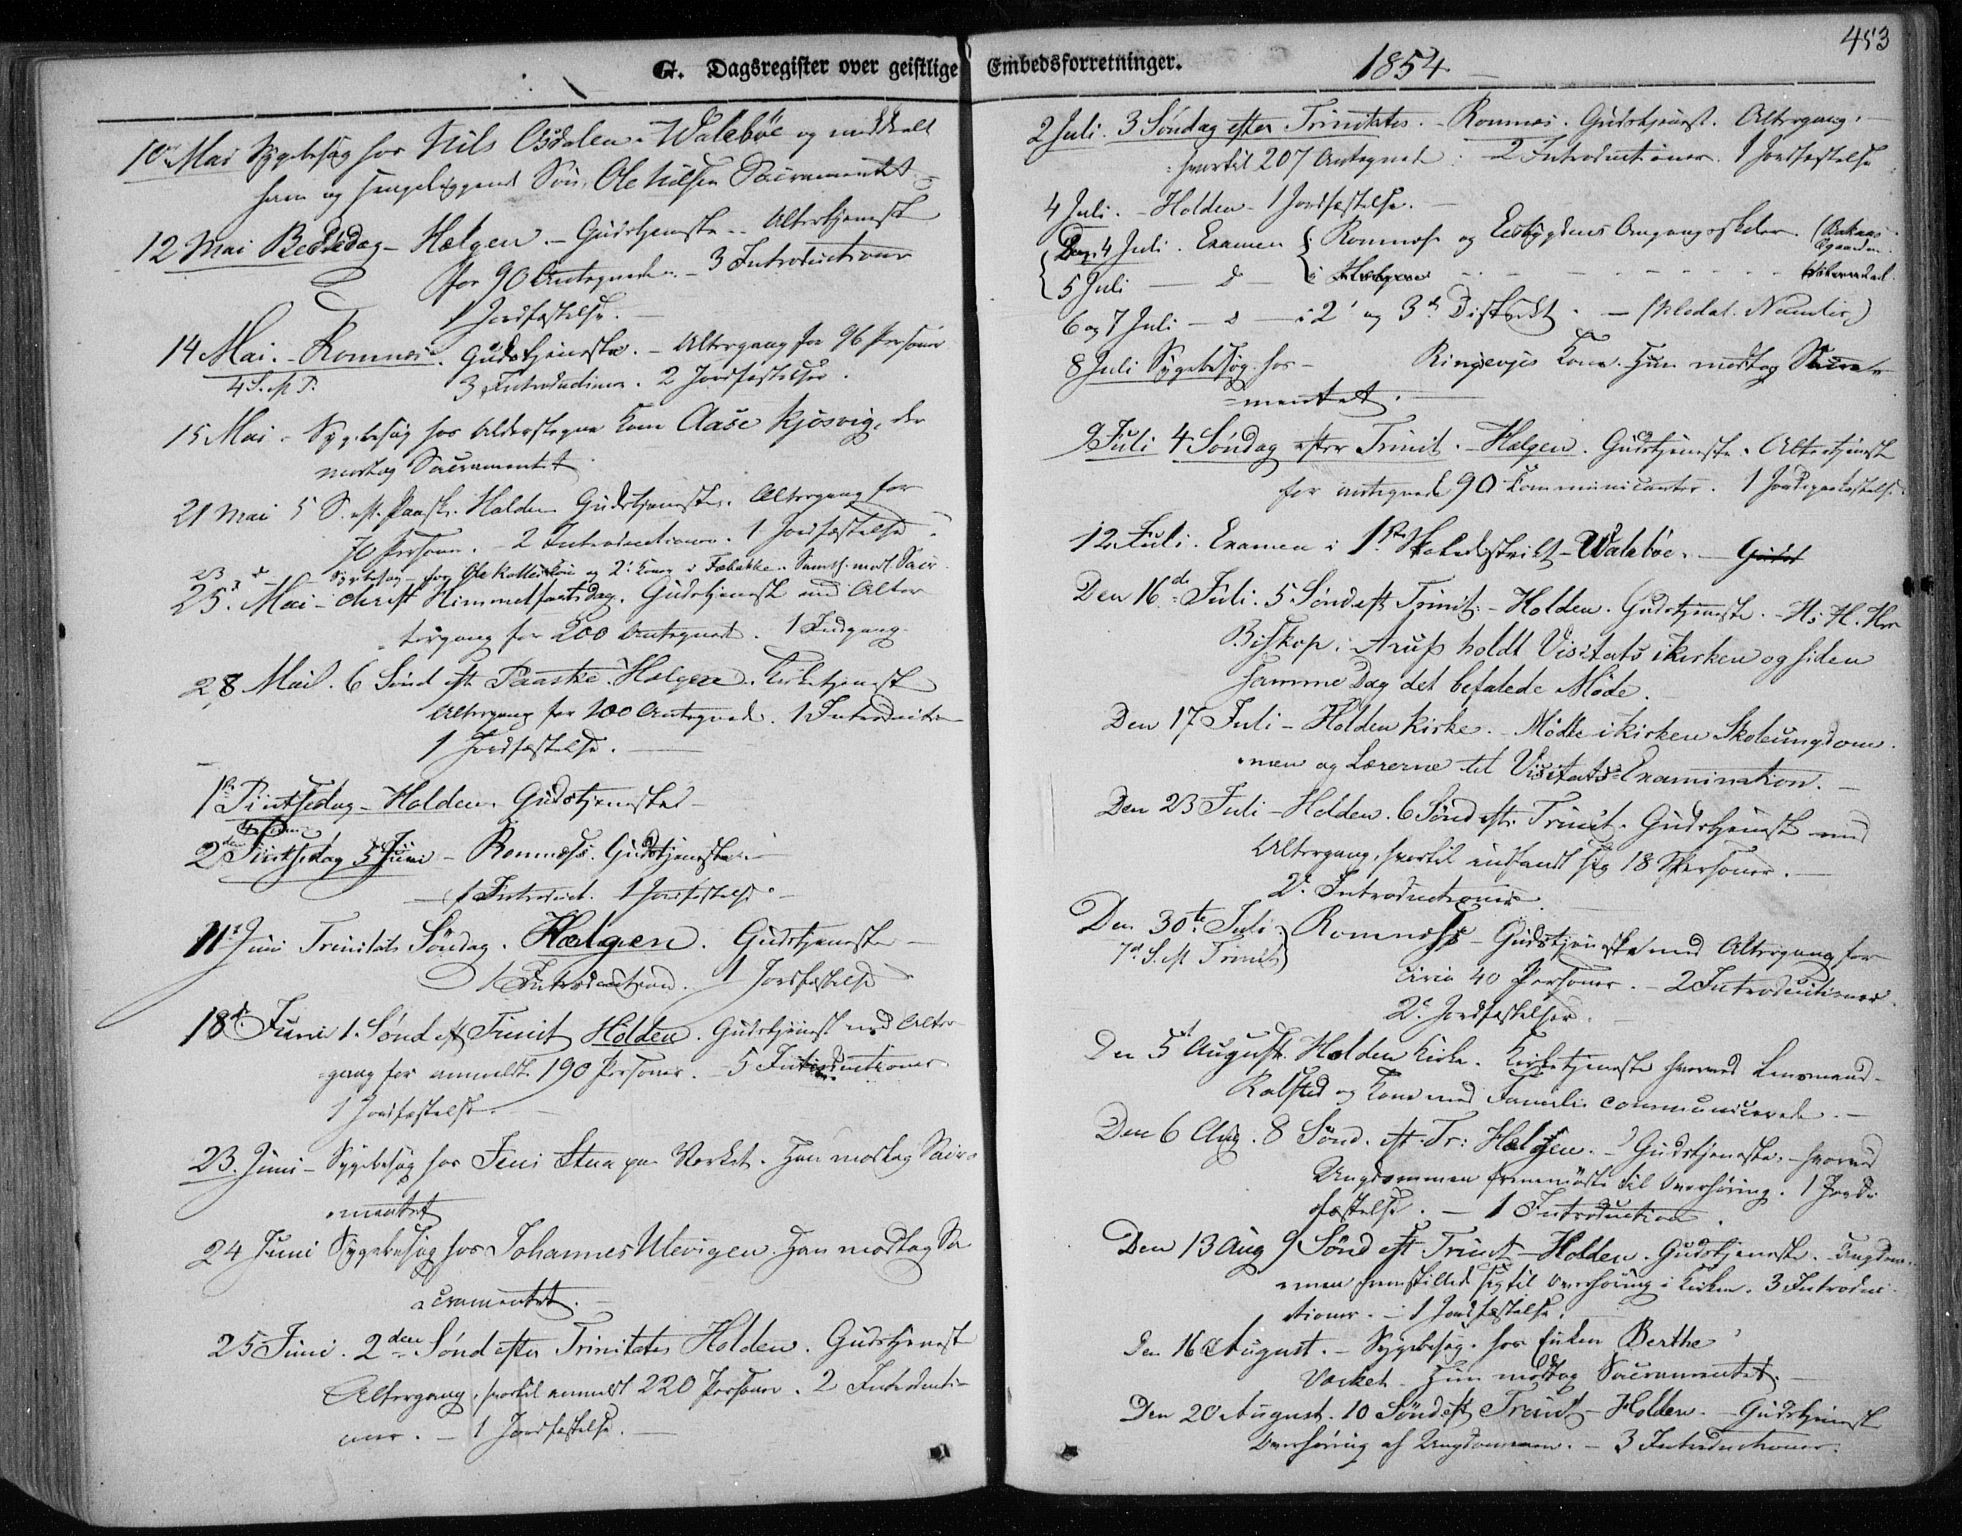 G. Dagsregister over geistlige Embedsforretninger.
1854
453
10de Mai Sygebesøg hos Nils Osdalen - Walebøe og meddeelt
ham og sengeliggende Søn, Ole Nilsen Sacramentet
12 Mai Bededag - Hælgen. - Gudstjeneste -- Altertjeneste
for 90 Antegnede. - 3 Introductioner
1 Jordfæstelse. -
14 Mai. - Romnæs. Gudstjeneste. - Altergang for 96 Personer
4 S. e. P. 3 Introductioner. 2 Jordfæstelser.
15 Mai - Sygebesøg hos Kone Aase Kjosvig, der
modtog Sacramentet.
21 Mai 5 S. eft. Paaske. Holden Gudstjeneste. Altergang for
70 Personer. - 2 Introductioner. 1 Jordfæstelse
23 Sygebesøg - hos Ole
25d Mai - Christi Himmelfartsdag. Gudstjeneste med Alter
gang for 200 Antegned. 1 Indgang.
28 Mai. 6 Sønd eft Paaske. Hælgen. Kirketjeneste
Altergang for 100 Antegnede. 1 Introduction
1 Jordfæstelse. -
1ste Pintsedag - Holden. Gudstjeneste -
2den Pintsedag 5 Juni - Romnæs. Gudstjeneste. -
1 Introduct. 1 Jordfæstelse
11te Juni Trinitatis Søndag. Hælgen. Gudstjeneste -
1 Introduction. 1 Jordfæstelse
18d Juni 1. Sønd eft Trinit Holden. Gudstjeneste med Alter
gang for anmeldte 190 Personer. - 5 Introductioner.
1 Jordfæstelse. -
23. Juni - Sygebesøg hos Jens Stua paa Værket. Han modtog Sacra
mentet
24 Juni Sygebesøg hos Johannes Ulevigen. Han modtog Sa
cramentet. -
25 Juni. 2den Sønd efter Trinitatis Holden. Gudstjeneste
Altergang, hvortil anmeldt 220 Personer. 2 Introducti-
oner. - 1 Jordfæstelse. -
2 Juli. 3 Søndag efter Trinitatis. - Romnæs. Gudstjenest. Altergang. -
hvortil 207 Antegnede. 2 Introductioner. 1 Jordfæstelse
4 Juli. - Holden - 1 Jordfæstelse. -
4 Juli. Examen i Romnæs og Omgangsskoler.
5 Juli - d - i Hælgen
6 og 7 Juli - d - i 2' og 3d Distrikt. -
8 Juli Sygebesøg hos - Ringevejs Kone. Hun modtog Sacra
mentet. -
9 Juli 4 Søndag efter Trinit. - Hælgen. Gudstjeneste. Altertjenest
for antegnede 90 Communicanter. 1 Jordspaakastelse
12 Juli. Examen i 1ste Skoledistrikt - Walebøe. - Gudst
Den 16de Juli. 5 Sønd eft Trinit. - Holden. Gudstjeneste. - Hs. H. Hr
Biskop i. Arup holdt Visitats i Kirken og siden
samme Dag det befalede Møde.
Den 17 Juli - Holden Kirke. - Mødte i Kirken Skoleungdom
men og Lærerne til Visitats-Examination. -
Den 23 Juli - Holden. 6 Sønd eft. Trinit. Gudstjeneste med
Altergang, hvortil indfandt sig 18 Personer. -
2 Introductioner.
Den 30te Juli Romnæs - Gudstjeneste med Altergang for
7d S. eft Trinit circa 40 Personer. - 2 Introductioner.
2 Jordfæstelser.
Den 5te August. Holden Kirke. Kirketjeneste hvorved Lensmand
Ralsted og Kone med Familie communicerede. -
Den 6 Aug. 8 Sønd. eft. Tr: Hælgen. - Gudstjeneste. hvorved
Ungdommen fremmødte til Overhøring. 1 Jord
fæstelse. - 1 Introduction.
Den 13 Aug 9 Sønd eft Trinit - Holden. Gudstjeneste. Ungdom
men fremstilled sig til Overhøring i Kirken. 3 Introduc
tioner. - 1 Jordfæstelse.
Den 16 August. - Sygebesøg. hos Enken Berthe
Værket. Hun modtog Sacramentet. -
Den 20 August. 10 Sønd eft Trinit - Holden. - Gudstjenest
Overhøring af Ungdommen. - 3 Introductioner.